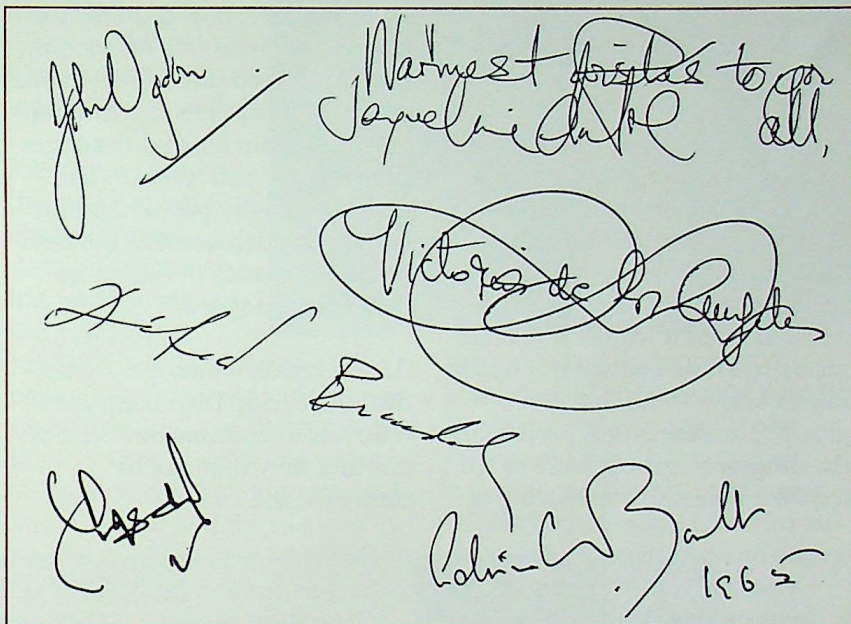 John Ogdon
Warmest wishes to you
all,
Jacqueline du Pré
Victoria de los Angeles
Brendel
Adrian C. Boult
1965